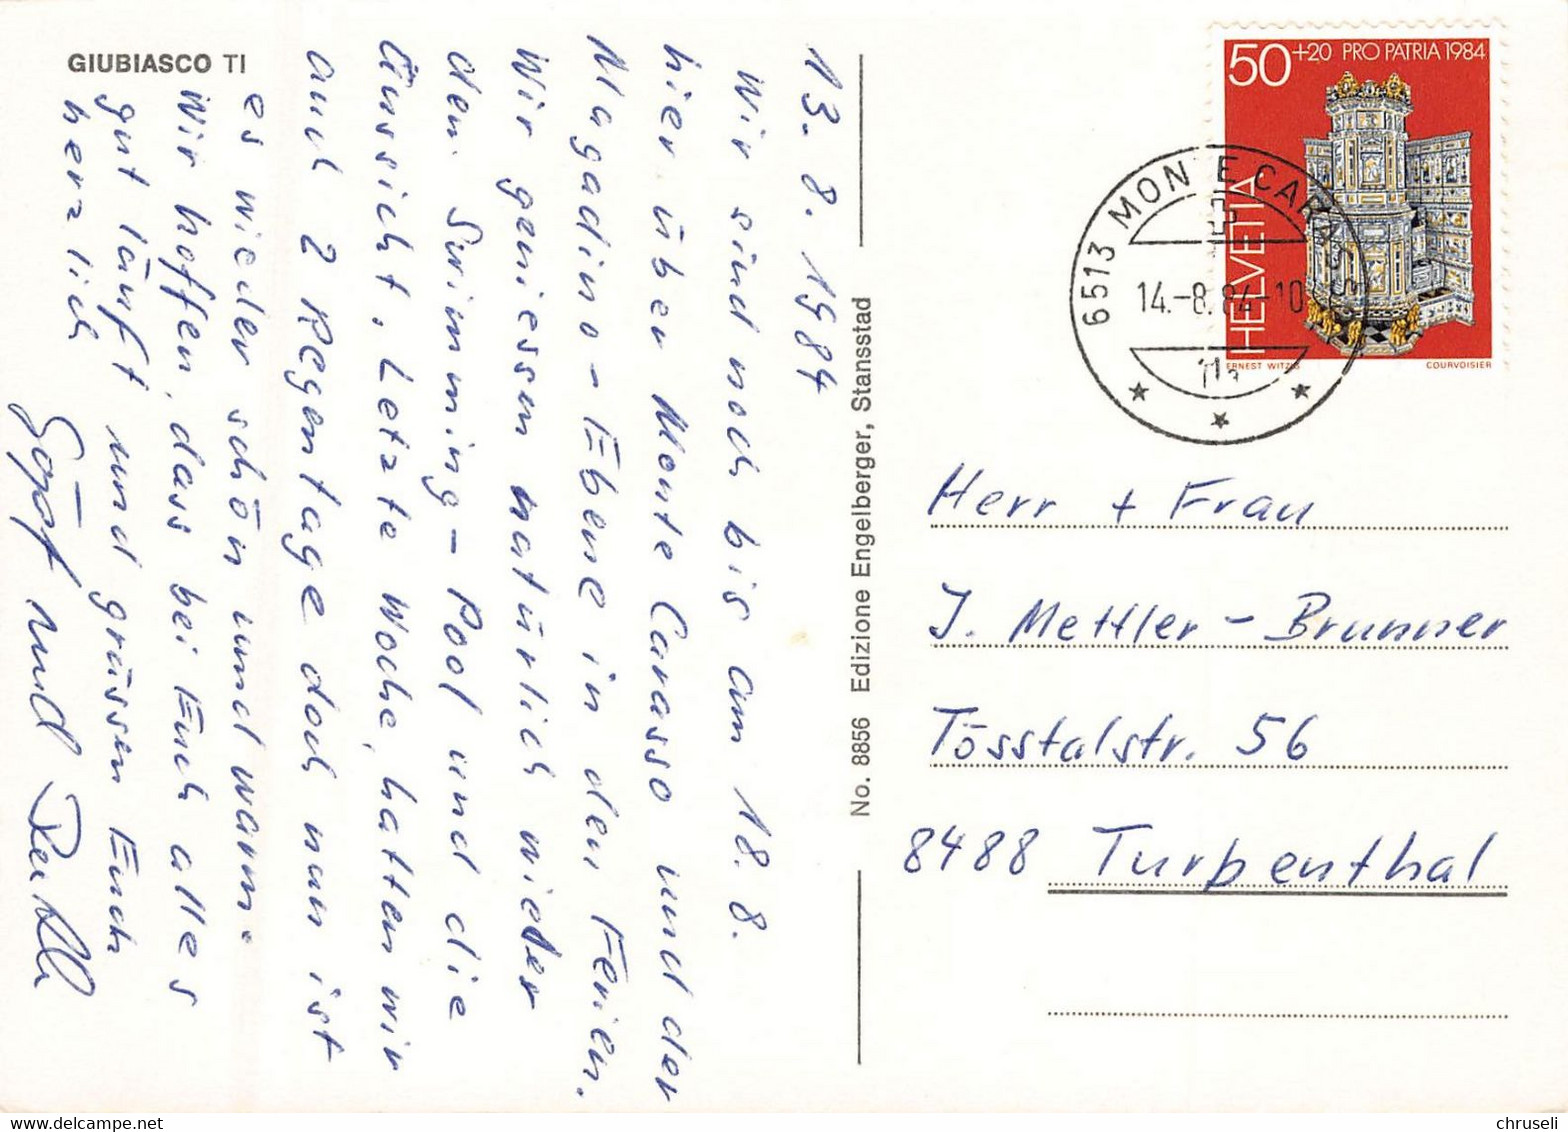 GIUBIASCO TI
13. 8. 1984
Wir sind noch bis am 18. 8.
hier über Monte Carasso und der
Magadino-Ebene in den Ferien.
Wir geniessen natürlich wieder
den Swimming-Pool und die
Aussicht. Letzte Woche hatten wir
auch 2 Regentage doch nun ist
es wieder schön und warm.
Wir hoffen, dass bei Euch alles
gut läuft und grüssen Euch
herzlich
Göpf und
No. 8856 Edizione Engelberger, Stansstad
50+20 PRO PATRIA 1984
HELVETIA
ERNEST WITZIG
COURVOISIER
6513 MONTE CARASSO
14.-8.84-10
Herr + Frau
J. Mettler-Brunner
Tösstalstr. 56
8488 Turbenthal
chruseli